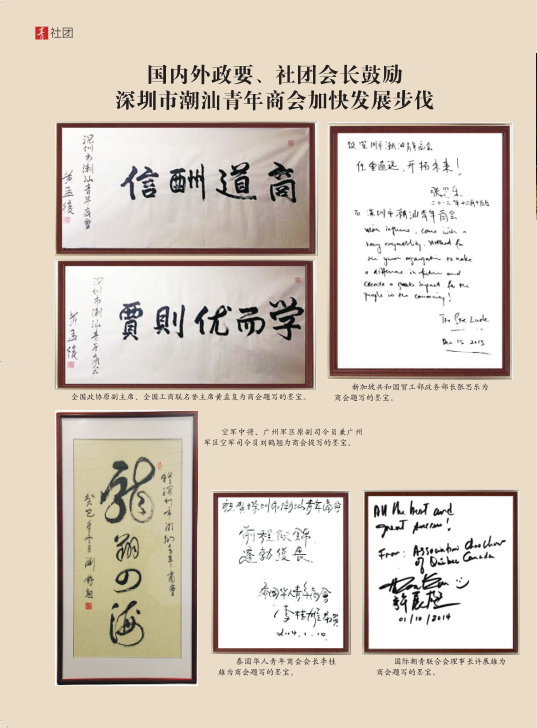 社团
国内外政要、社团会长鼓励
深圳市潮汕青年商会加快发展步伐
深圳市潮汕青年商会
信酬道商
黄孟复
深圳市潮汕青年商会
贾则优而学
黄孟复
致深圳市潮汕青年商会
任重道远，开拓未来！
张思乐
二〇一三年十二月十五日
To 深圳市潮汕青年商会
With influence, come with a
heavy responsibility. Wishing for
the young organization to make
a difference in future and
create a greater impact for the
people in the community!
Teo Ser Luck
Dec 15 2013
全国政协原副主席、全国工商联名誉主席黄孟复为商会题写的墨宝。
新加坡共和国贸工部政务部长张思乐为
商会题写的墨宝。
空军中将、广州军区原副司令员兼广州
军区空军司令员刘鹤翘为商会提写的墨宝。
龙翔四海
赠深圳市潮汕青年商会
祝贺深圳市潮汕青年商会
前程似锦
蓬勃发展
泰国华人青年商会
李桂雄
2014.1.10
All the best and
great success!
From: Association Chaochow
of Quebec Canada
许展雄
01/10/2014
泰国华人青年商会会长李桂
雄为商会题写的墨宝。
国际潮青联合会理事长许展雄为
商会题写的墨宝。